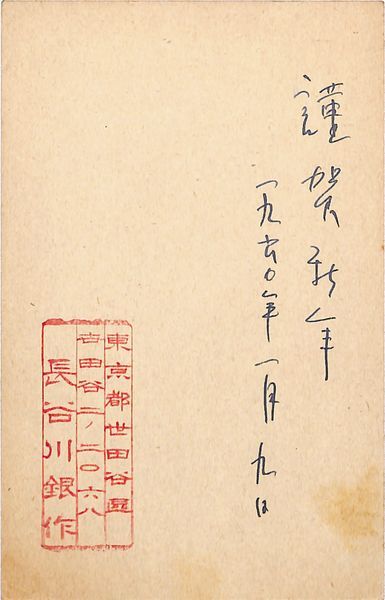 謹賀新年
一九六〇年一月九日
東京都世田谷區
世田谷二ノ二〇六八
長谷川銀作